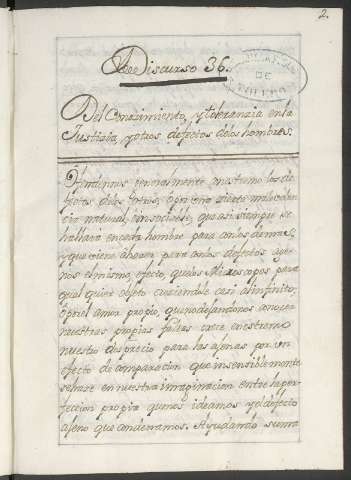 2.
Discurso 36.
DE
TOLEDO
Del Conocimiento, y tolerancia en la
Justicia, y otros defectos delos hombres.
generalmente los de
fectos delos otros, ò por una cierta malevolen
cia natural, que casi siempre se
hallará en cada hombre para con los demas,
y que viene à hacer para con los defectos age
nos el mismo efecto, que los Microscopos para
qual quier objeto creciendole casi al infinito;
ò por el amor propio, que no dejandonos conocer
nuestras propias faltas, crece en estremo
nuestro desprecio para las ajenas por un
efecto de comparacion que insensiblemente
se hace en nuestra imaginacion entre la per-
feccion propia que nos ideamos y el defecto
ajeno que condenamos. Ayudando suma